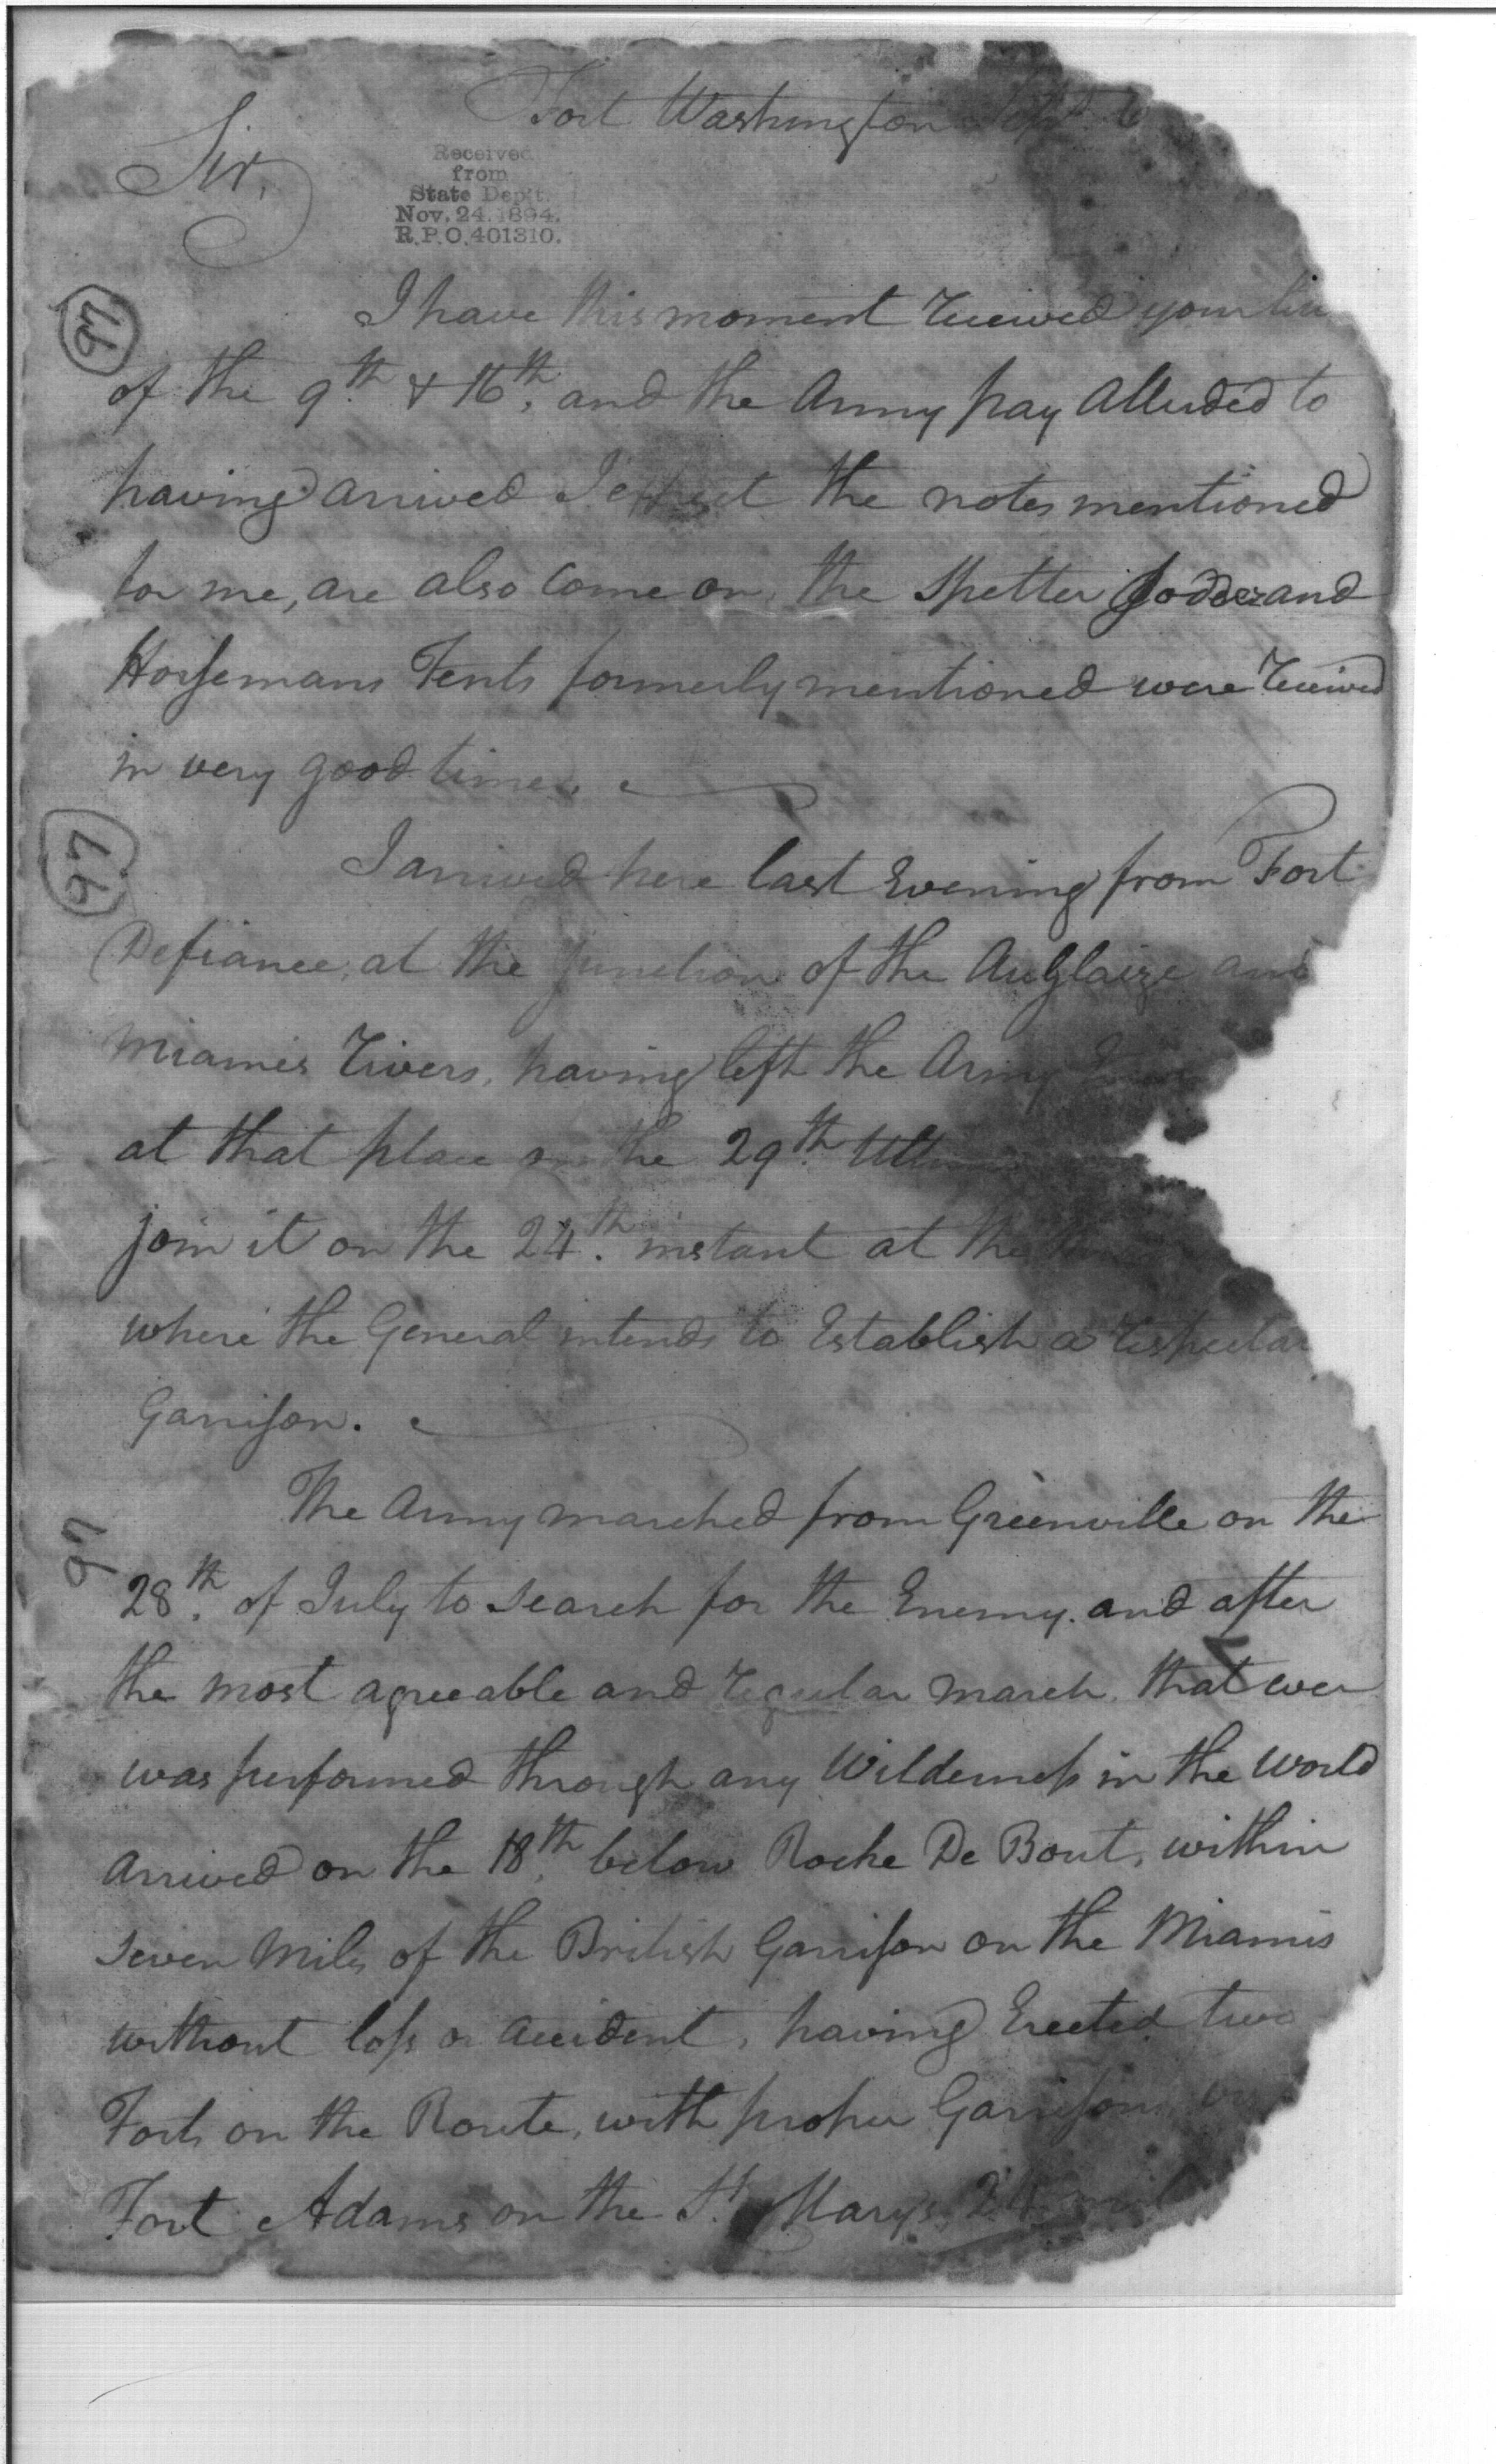 Fort Washington Sept. 6
Sir,
Received
from
State Dep't.
Nov. 24. 1894.
R.P.O. 401310.
I have this moment received your
46
of the 9th & 16th, and the Army pay Alluded to
having arrived I expect the notes mentioned
for me, are also come on, the Spetter and
Horsemans Tents formerly mentioned were received
in very good time.
I arrived here last Evening from Fort
46
Defiance, at the junction of the Auglaize and
Miamis rivers, having left the Army
at that place on the 29th
join it on the 24th. instant at the
where the General intends to Establish a
Garrison.
The Army marched from Greenville on the
46
28th. of July to search for the Enemy. and after
the most agreeable and regular march, that ever
was performed through any Wilderness in the World
Arrived on the 18th. below Roche De Bout, within
seven Miles of the British Garrison on the Miamis
without loss or accident, having Erected two
Forts on the Route, with proper Garrisons,
Fort Adams on the St. Marys, 24